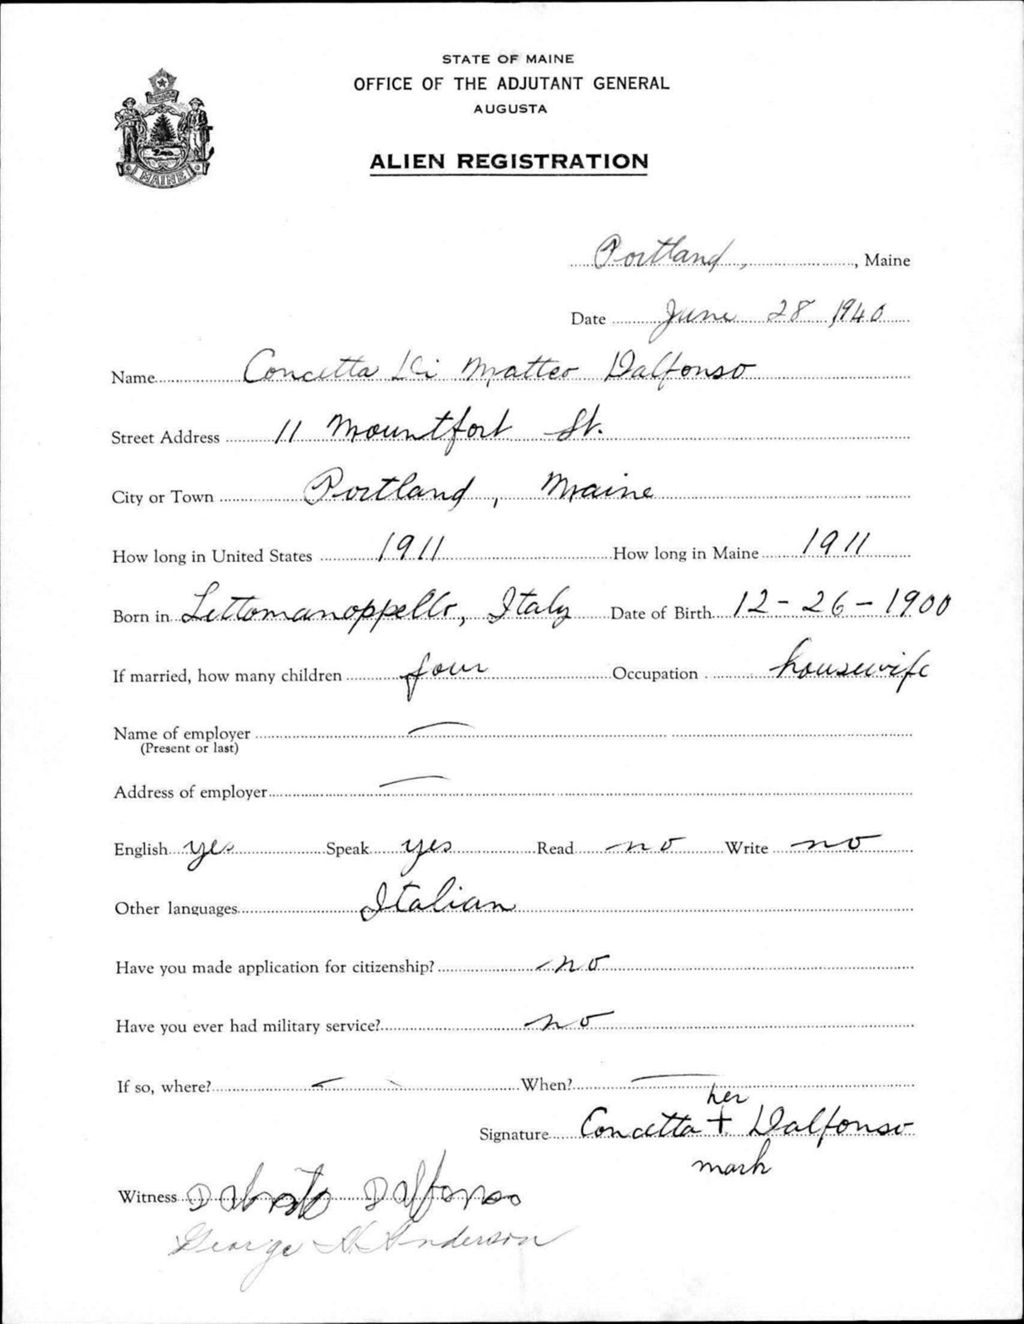 STATE OF MAINE
OFFICE OF THE ADJUTANT GENERAL
AUGUSTA
MAINE
ALIEN REGISTRATION
Portland, , Maine
Date June 28 1940
Name Concetta Di Matteo Dalfonso
Street Address 11 Mountfort St.
City or Town Portland, Maine
How long in United States 1911 How long in Maine 1911
Born in Lettomanoppello, Italy Date of Birth 12-26-1900
If married, how many children four Occupation housewife
Name of employer —
(Present or last)
Address of employer —
English yes Speak yes Read no Write no
Other languages Italian
Have you made application for citizenship? no
Have you ever had military service? no
If so, where? — When? —
her
Signature Concetta + Dalfonso
mark
Witness Dalfonso
George H. Anderson